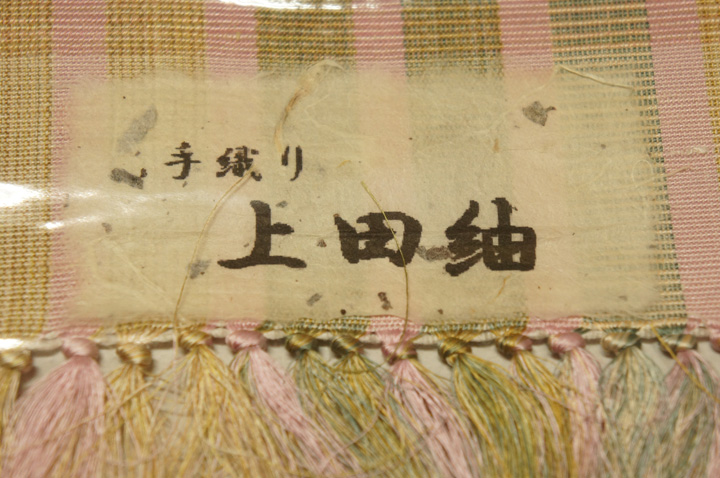 手織り
上田紬